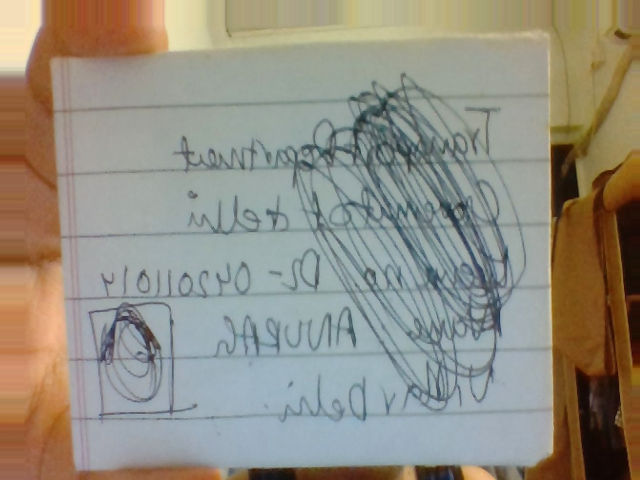 Transport Department
Governmt of delhi
Licence no. DL-042011014
Name ANURAG
Uttar Delhi